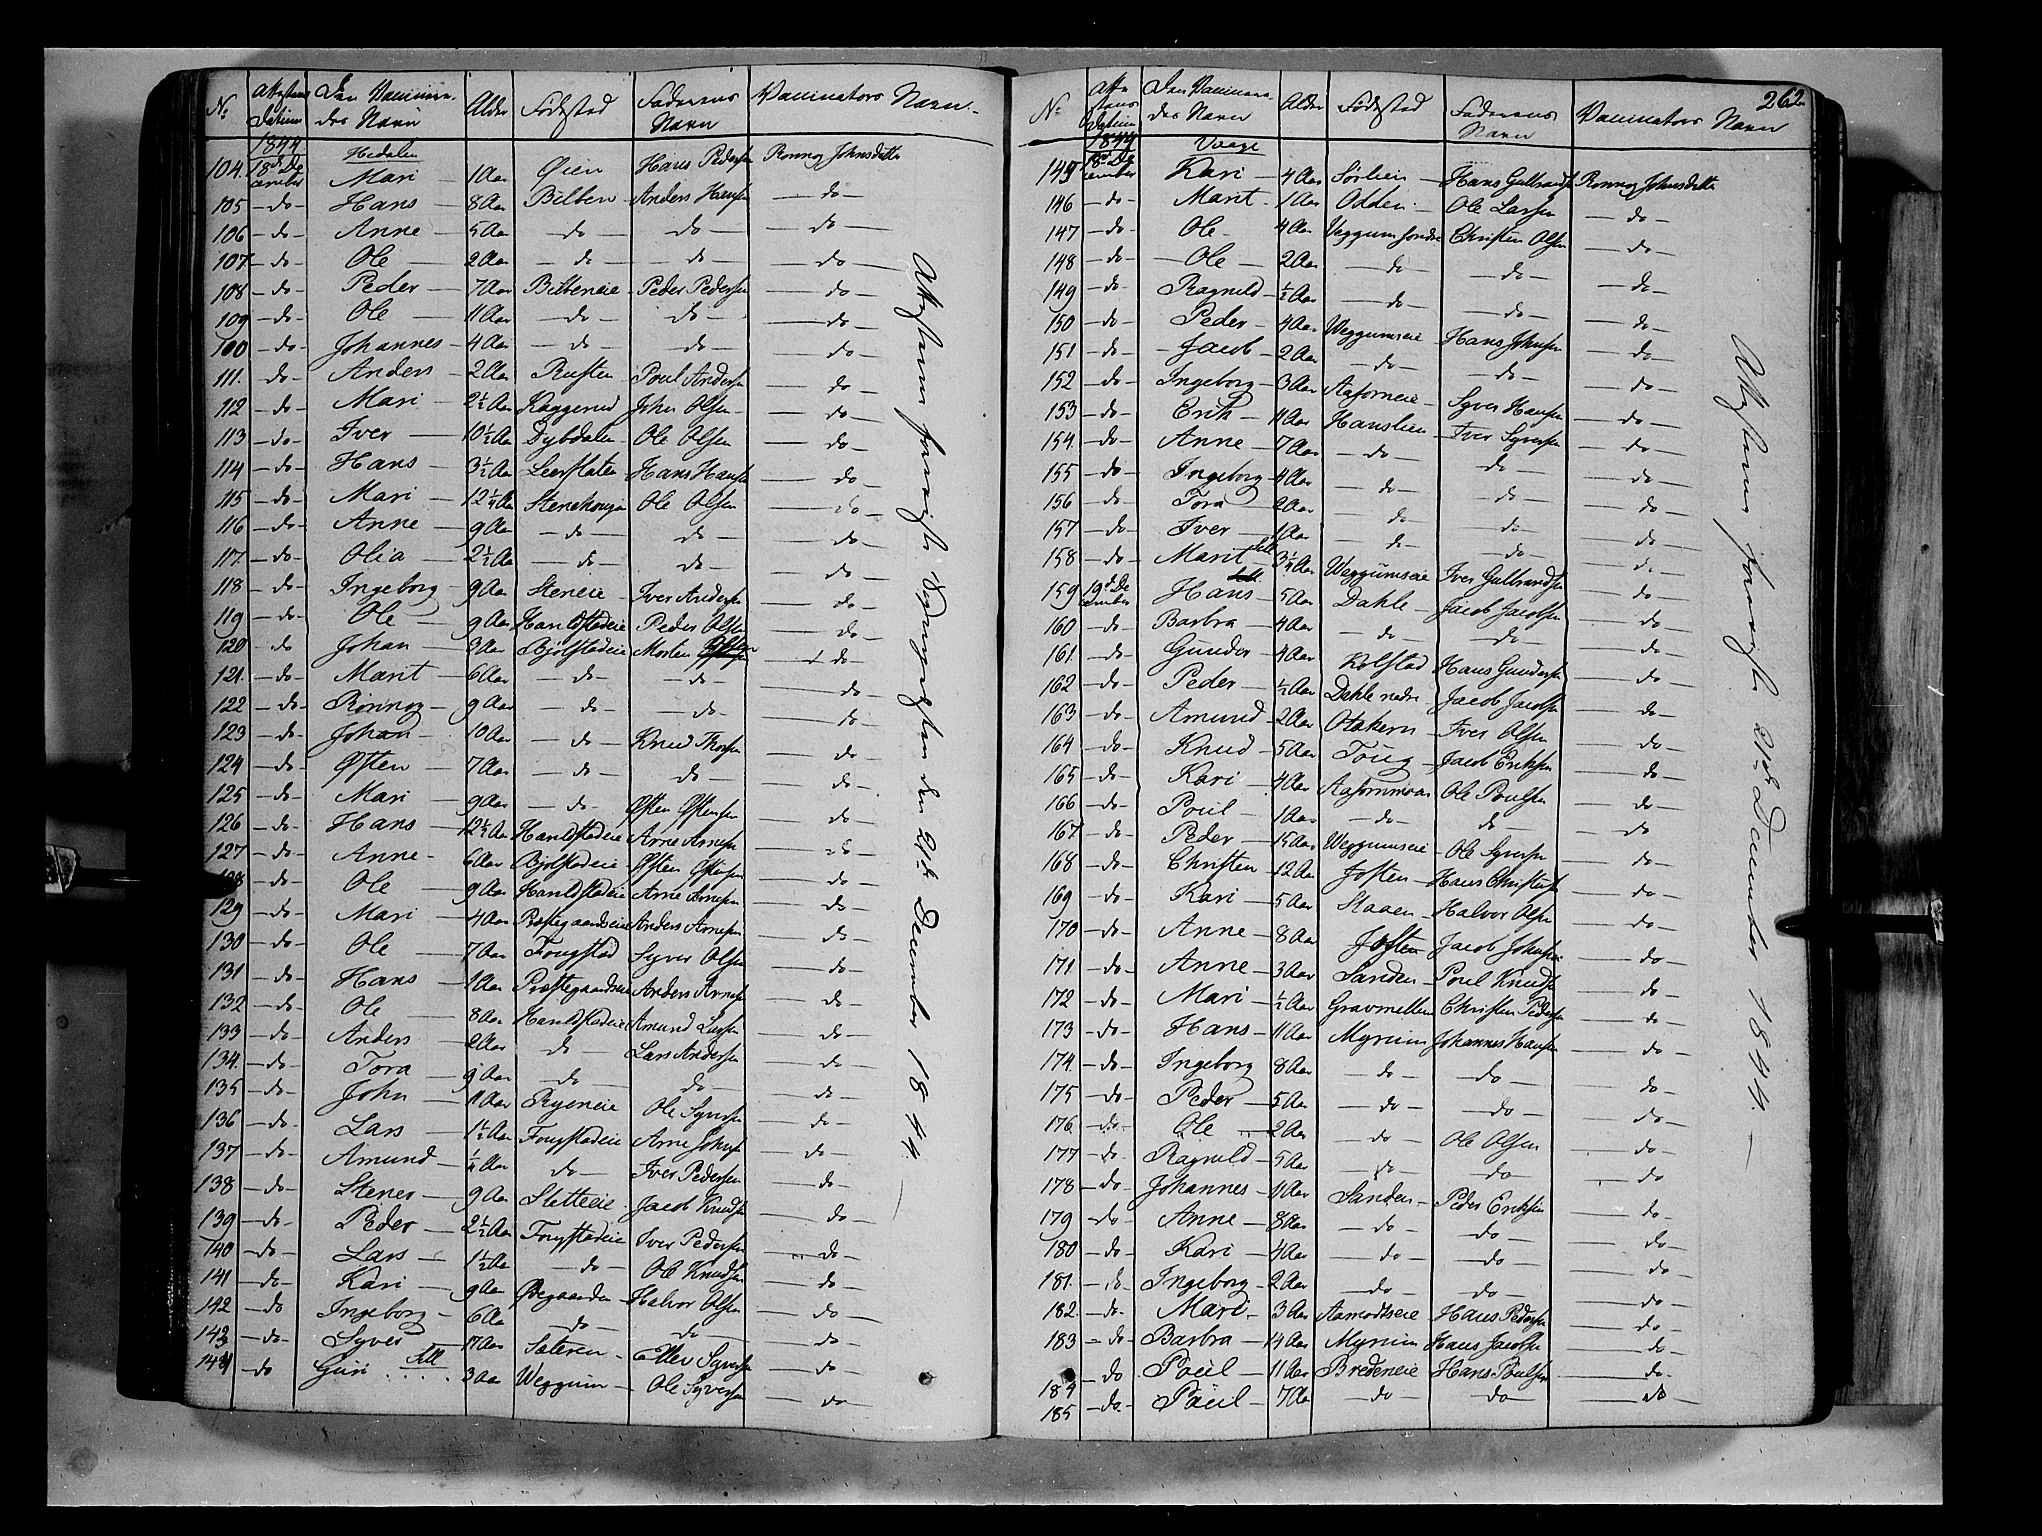 No Attestens Datum Den Vaccineredes Navn Alder Fødested Faderens Navn Vaccinators Navn
1844 Hedalen
104. 18de December Mari 1 Aar Øien Hans Pedersen Ronnog Johnsdatter
105 do Hans 8 Aar Bilben Anders Hansen do
106 do Anne 5 Aar do do do
107 do Ole 2 Aar do do do
108 do Peder 7 Aar Bilbeneie Peder Pedersen do
109 do Ole 11 Aar do do do
100 do Johannes 4 Aar do do do
111. do Anders 2 Aar Rusten Poul Andersen do
112 do Mari 2½ Aar Raggerud John Olsen do
113 do Iver 10½ Aar Dybdalen Ole Olsen do
114 do Hans 3½ Aar Leerflaten Hans Hansen do
115 do Mari 12¼ Aar Stenehougen Ole Olsen do
116 do Anne 9 Aar do do do
117. do Olia 2½ Aar do do do
118 do Ingeborg 9 Aar Steneie Iver Andersen do
119 do Ole 9 Aar Harildstadeie Peder Olsen do
120 do Johan 3 Aar Bjølstadeie Morten do
121. do Marit 6 Aar do do do
122 do Ronnog 9 Aar do do do
123 do Johan 10 Aar do Knud Thorsen do
124 do Østen 7 Aar do do do
125 do Mari 9 Aar do Østen Østensen do
126 do Hans 12½ Aar Harildstadeie Arne Arnesen do
127 do Anne 6 Aar Bjølstadeie Østen Østensen do
128 do Ole 9 Aar Harildstadeie Arne Arnesen do
129 do Mari 4 Aar Præstegaardseie Anders Arnesen do
130 do Ole 7 Aar Fougstad Syver Olsen do
131 do Hans 1 Aar Præstegaardseie Anders Arnesen do
132 do Ole 8 Aar Harildstadeie Amund Larsen do
133 do Anders 2 Aar do Lars Andersen do
134. do Tora 9 Aar do do do
135 do John 11 Aar Ryeneie Ole Syversen do
136 do Lars 1½ Aar Fougstadeie Arne Johnsen do
137 do Amund ¼ Aar do Iver Pedersen do
138 do Stener 9 Aar Sletteeie Jacob Knudsen do
139 do Peder 2½ Aar Fougstadeie Iver Pedersen do
140 do Lars 1½ Aar do Ole Knudsen do
141 do Kari 9 Aar Øvegaarden Halvor Olsen do
142 do Ingeborg 6 Aar do do do
143 do Syver 17 Aar Sæteren Eller Syversen do
144 do Guri 3 Aar Weggum Ole Syversen do
Attesterne foreviste Provsten den 21de December 1844
262.
No Attestens Datum Den Vaccineredes Navn Alder Fødested Faderens Navn Vaccinators Navn
1844 Vaage
145 18de December Kari 4 Aar Sørlien Hans Gulbrandsen Ronnog Johnsdatter
146 do Marit 1 Aar Odden Ole Larsen do
147 do Ole 4 Aar Veggum søndre Christen Olsen do
148 do Ole 2 Aar do do do
149 do Ragnild ½ Aar do do do
150 do Peder 4 Aar Weggumseie Hans Johnsen do
151 do Jacob 2 Aar do do do
152 do Ingeborg 3 Aar Aaforneie Syver Hansen do
153 do Erik 11 Aar Hanslien Iver Syversen do
154. do Anne 7 Aar do do do
155 do Ingeborg 4 Aar do do do
156 do Tora 2 Aar do do do
157 do Iver 1 Aar do do do
158 do Marit 3½ Aar Weggumseie Iver Gulbrandsen do
159 19de December Hans 5 Aar Dahle Jacob Jacobsen do
160 do Barbra 4 Aar do do do
161. do Gunder 4 Aar Kolstad Hans Gundersen do
162 do Peder ½ Aar Dahle nedre Jacob Jacobsen do
163 do Amund 2 Aar Olakern Iver Olsen do
164 do Knud 5 Aar Toug Jacob Eriksen do
165 do Kari 4 Aar Aafornmoen Ole Poulsen do
166 do Poul 1 Aar do do do
167 do Peder 15 Aar Weggumseie Ole Syversen do
168 do Christen 12 Aar Josten Hans Christensen do
169 do Kari 5 Aar Haaen Halvor Olsen do
170 do Anne 8 Aar Josten Jacob Johnsen do
171. do Anne 3 Aar Sanden Poul Knudsen do
172 do Mari ½ Aar Gravmellem Christen Pedersen do
173 do Hans 11 Aar Myrum Johannes Hansen do
174 do Ingeborg 8 Aar do do do
175 do Peder 5 Aar do do do
176 do Ole 2 Aar do Ole Olsen do
177 do Ragnild 5 Aar do do do
178 do Johannes 11 Aar Sanden Peder Eriksen do
179 do Anne 8 Aar do do do
180 do Kari 4 Aar do do do
181. do Ingeborg 2 Aar do do do
182. do Mari 3 Aar Aamodtseie Hans Pedersen do
183 do Barbra 14 Aar Myrum Hans Jacobsen do
184 do Poul 11 Aar Bredeneie Hans Poulsen do
185 do Poul 7 Aar do do do
Attesterne foreviste 21de December 1844.